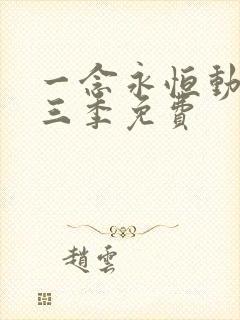 一念永恒動
三季免費
趙雲